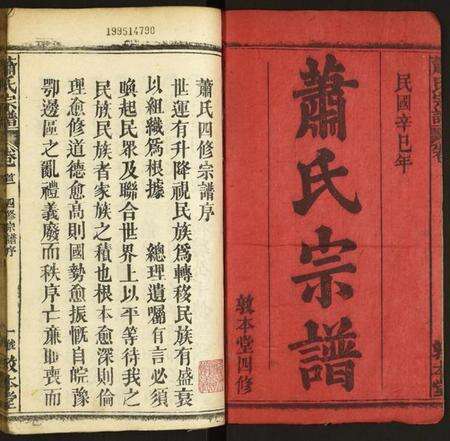 民國辛巳年
蕭氏宗譜
敦本堂四修
199514790
蕭氏四修宗譜序
世運有升降視民族爲轉移民族有盛衰
以組織爲根據　總理遺囑有言必須
喚起民眾及聯合世界上以平等待我之
民族民族者家族之積也根本愈深則倫
理愈修道德愈高則國勢愈振慨自皖豫
鄂邊區之亂禮義廢而秩序亡廉恥喪而
蕭氏宗譜
卷首
四修宗譜序
一
敦本堂